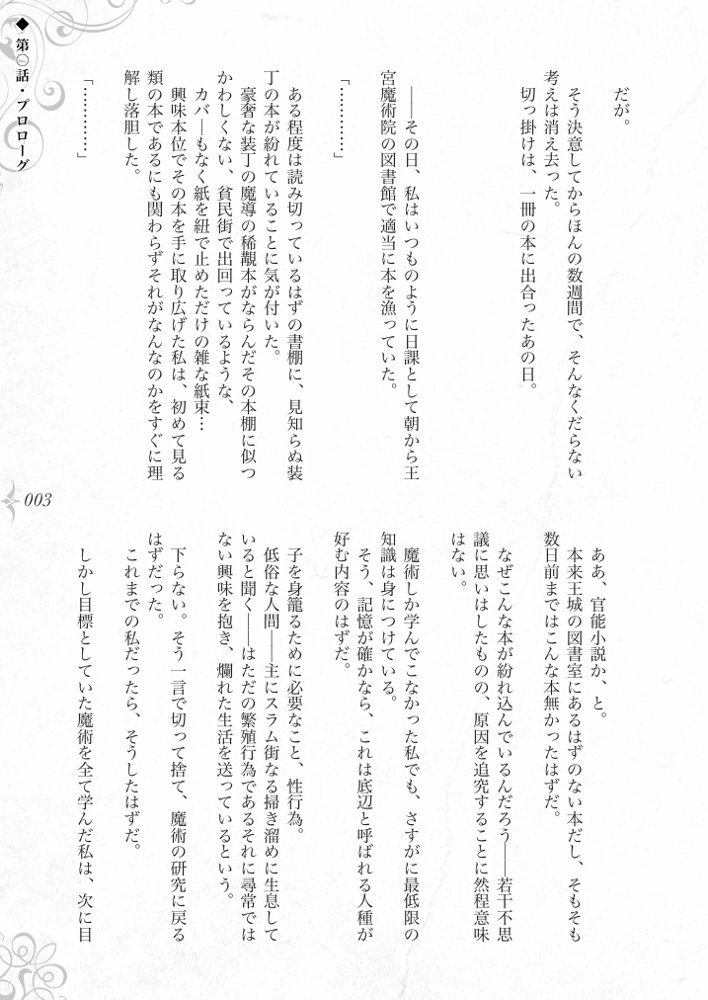 ◆ 第〇話・プロローグ
だが。
そう決意してからほんの数週間で、そんなくだらない
考えは消え去った。
切っ掛けは、一冊の本に出合ったあの日。
――その日、私はいつものように日課として朝から王
宮魔術院の図書館で適当に本を漁っていた。
「…………」
ある程度は読み切っているはずの書棚に、見知らぬ装
丁の本が紛れていることに気が付いた。
豪奢な装丁の魔導の稀覯本がならんだその本棚に似つ
かわしくない、貧民街で出回っているような、
カバーもなく紙を紐で止めただけの雑な紙束…
興味本位でその本を手に取り広げた私は、初めて見る
類の本であるにも関わらずそれがなんなのかをすぐに理
解し落胆した。
「…………」
ああ、官能小説か、と。
本来王城の図書室にあるはずのない本だし、そもそも
数日前まではこんな本無かったはずだ。
なぜこんな本が紛れ込んでいるんだろう――若干不思
議に思いはしたものの、原因を追究することに然程意味
はない。
魔術しか学んでこなかった私でも、さすがに最低限の
知識は身につけている。
そう、記憶が確かなら、これは底辺と呼ばれる人種が
好む内容のはずだ。
子を身籠るために必要なこと、性行為。
低俗な人間――主にスラム街なる掃き溜めに生息して
いると聞く――はただの繁殖行為であるそれに尋常では
ない興味を抱き、爛れた生活を送っているという。
下らない。そう一言で切って捨て、魔術の研究に戻る
はずだった。
これまでの私だったら、そうしたはずだ。
しかし目標としていた魔術を全て学んだ私は、次に目
003